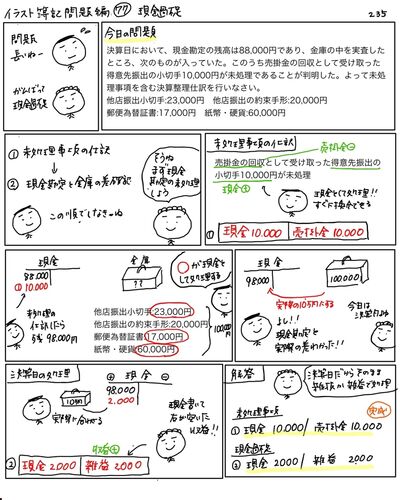 イラスト簿記 問題編 77 現金過不足
235
問題
長いねー
がんばって
現金過不足
今日の問題
決算日において、現金勘定の残高は88,000円であり、金庫の中を実査したところ、次のものが入っていた。このうち売掛金の回収として受け取った得意先振出の小切手10,000円が未処理であることが判明した。よって未処理事項を含む決算整理仕訳を行いなさい。
他店振出小切手:23,000円 他店振出の約束手形:20,000円
郵便為替証書:17,000円 紙幣・硬貨:60,000円
① 未処理事項の仕訳
② 現金勘定と金庫の差額確認
この順でしなきゃね
そうね
まず現金
勘定の未処理
しよう
未処理事項の仕訳
売掛金⊖
売掛金の回収として受け取った得意先振出の
小切手10,000円が未処理
現金⊕
現金として処理!!
すぐに換金できる
① 現金 10.000 売掛金 10.000
現金
88.000
① 10.000
未処理の
仕訳したら
残 98.000円
金庫
??
○が現金として処理する
他店振出小切手:23,000円
他店振出の約束手形:20,000円
郵便為替証書:17,000円
紙幣・硬貨:60,000円
100000円
現金
98.000
100000
実際の10万円にする
よし!!
現金勘定と
実際の差わかった!!
今日は
決算日よね
決算日の処理
10万円
実際に合わせる
⊕ 現金 ⊖
98.000
2.000
収益⊕
現金書いて
右が空いたら
収益!!
② 現金 2.000 雑益 2.000
解答
決算日だからそのまま
雑損か雑益で処理
完成
未処理事項
① 現金 10.000/売掛金 10.000
現金過不足
② 現金 2000/雑益 2.000